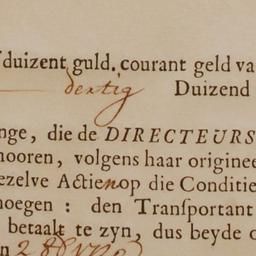 duizent guld. courant geld va
dertig Duizend
nge, die de DIRECTEURS
hooren, volgens haar originee
ezelve Actien op die Conditie
noegen: den Transportant
betaalt te zyn, dus beyde